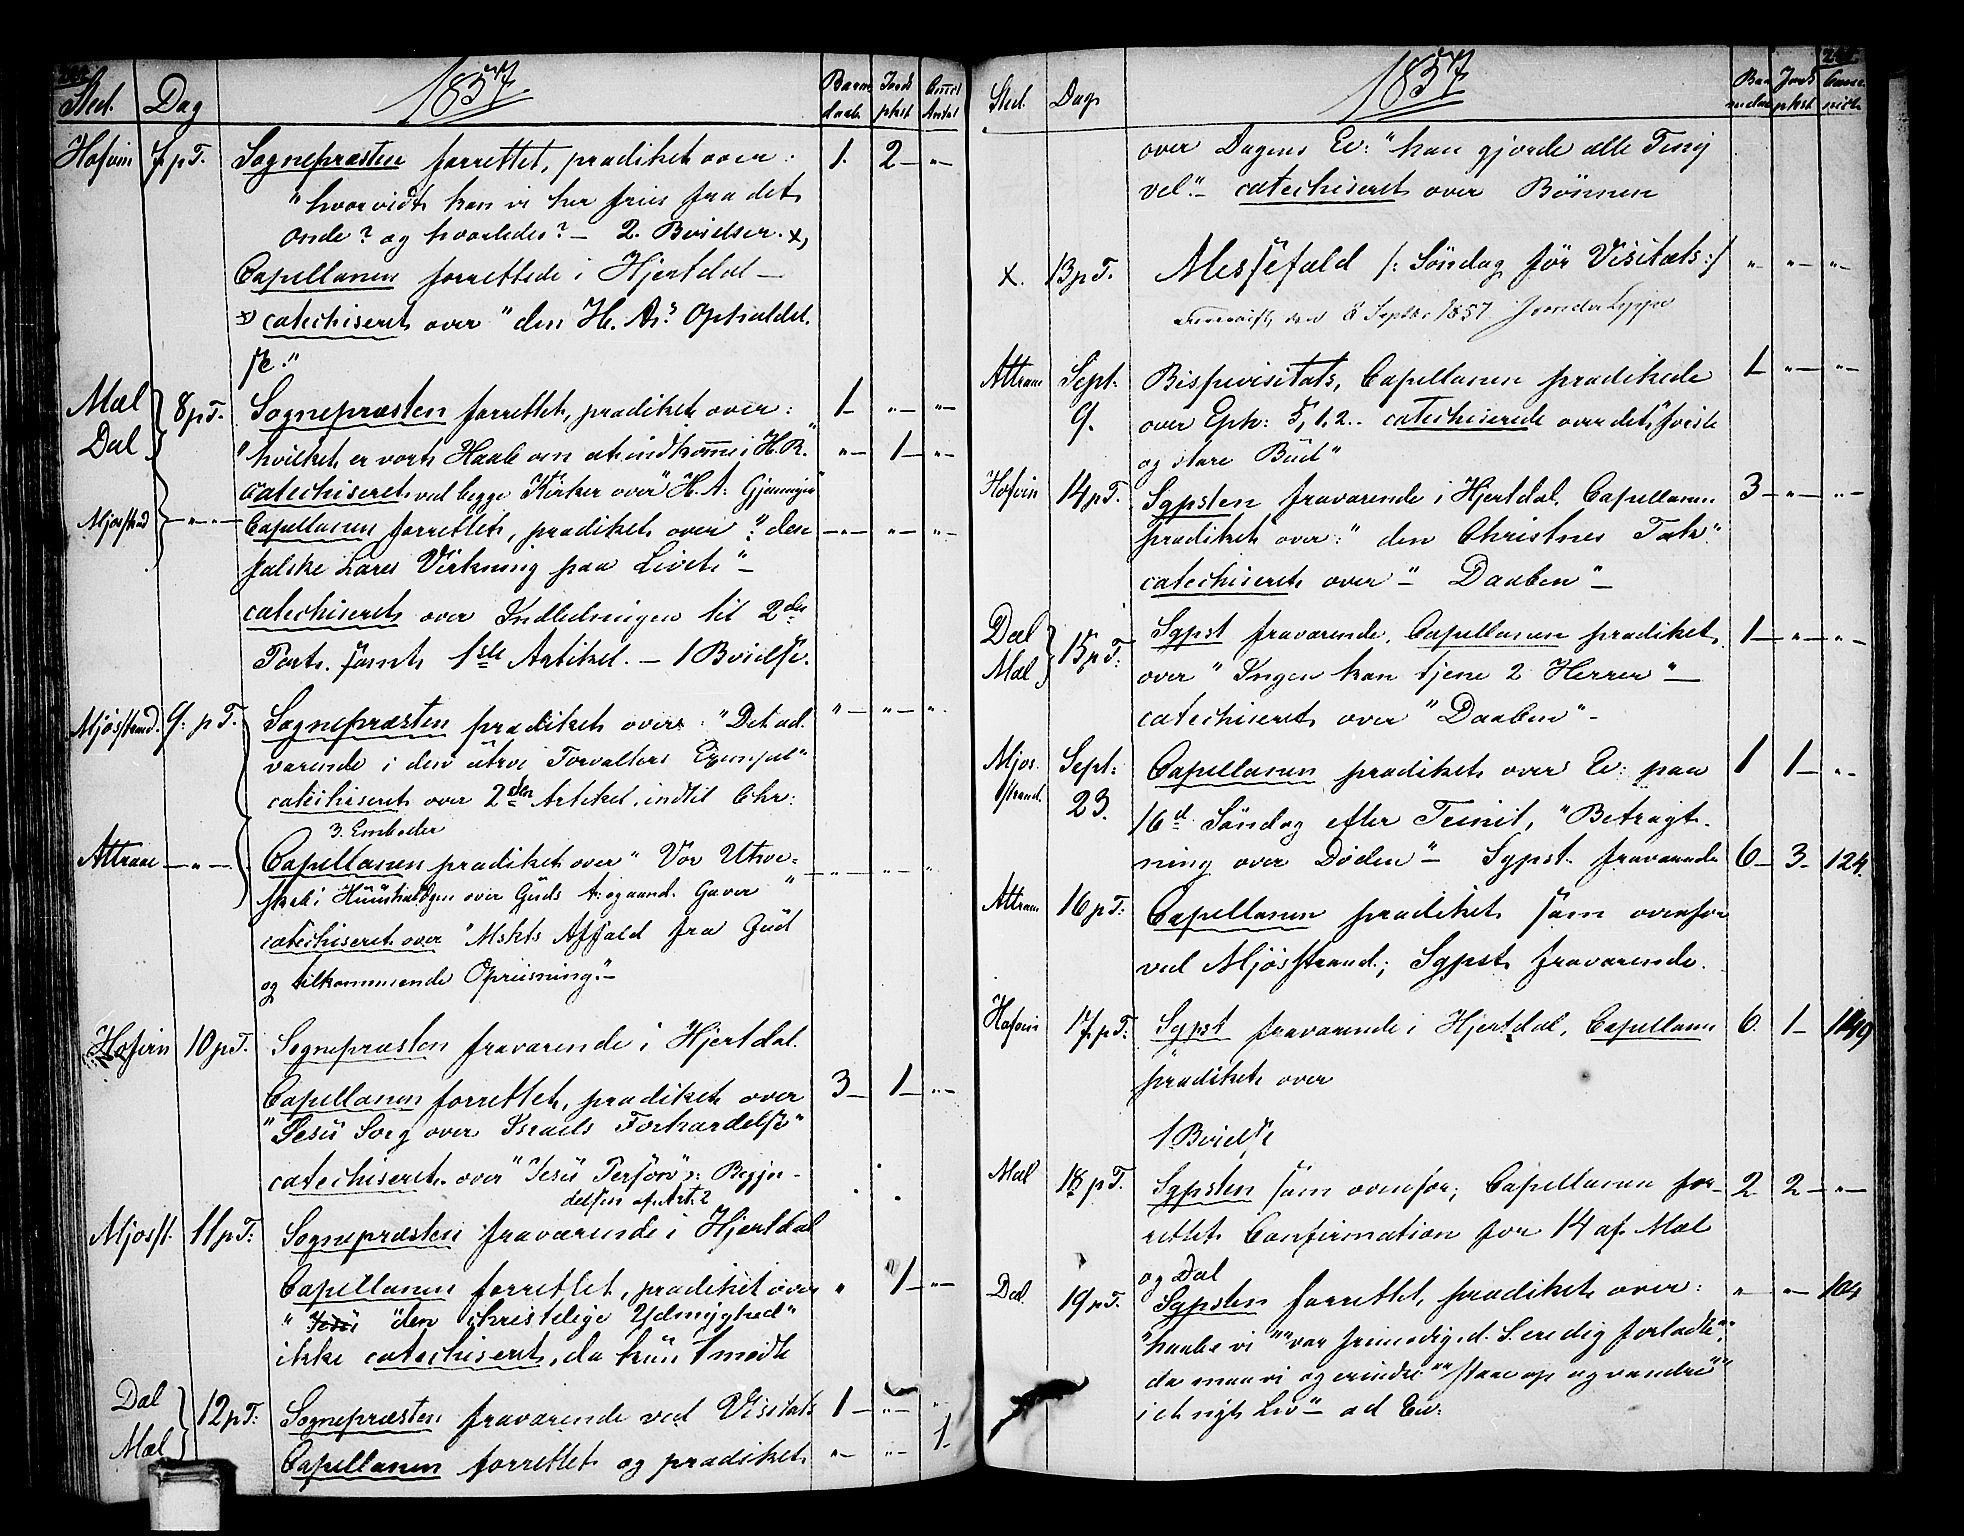 Sted. Dag 1857 Barne Introd
daab pkst Antal
Hofvin 7 p T. Sognepræsten forrettet, prædiket over: 1. 2 — " —
"hvorvidt kan vi her fries fra det
Onde? og hvorledes? — 2. Bvielser. x)
Capellanen forrettede i Hjertdal —
x) catechiseret over "den H. A.s Opholdel.
se."
Mæl 8 p T. Sognepræsten forrettet, prædiket over: 1 — " — " —
Dal "hvilket er vort Haab om at indkomme i H. R." " — 1 — " —
catechiseret ved begge Kirker over "H. A: Gjerninger"
Mjosstrand — " — Capellanen forrettet, prædiket over "den — " — " — " —
falske Læres Virkning paa Livet" —
catechiseret over Indledningen til 2den
Part. samt 1ste Artikel. — 1 Bvielse.
Mjösstrand. 9. p T. Sognepræsten prædiket over: "Det ad- " — " — "
varende i den utroe Forvalters Exempel"
catechiseret over 2den Artikel, indtil Chr:
3. Embeder
Attraae — " — Capellanen prædiket over "Vor Utroe- — " — " — "
skab i Huusholdgen over Guds t: og aand. Gaver"
catechiseret over "Mskts Affald fra Gud
og tilkommende Opreisning." —
Hofvin 10 p T. Sognepræsten fraværende i Hjertdal.
Capellanen forrettet, prædiket over 3 — 1 — " —
"Jesu Sorg over Israels Forhærdelse"
catechiseret over "Jesu Person" : Begyn-
delsen af Art. 2
Mjosst. 11 p T: Sognepræsten fraværende i Hjertdal
Capellanen forrettet, prædiket over " 1 — " —
" Jesu "den christelige Ydmyghed"
ikke catechiseret, da kun 1 mødte
Dal 12 p T: Sognepræsten fraværende ved Visitats 1 — " — "
Mæl Capellanen forrettet og prædiket " — " — 1 —
Sted. Dag 1857
over Dagens Ev: "han gjorde alle Ting
vel" — catechiseret over Bønnen
x. 13 p T. Messefald /: Søndag før Visitats :/ " — " — " —
den 8 Septbr 1857
Attraae Sept: Bispevisitats, Capellanen prædikede 1 — " — " —
9. over Eph: 5, 1, 2.. catechiserede over det "første
og store Bud"
Hofvin 14 p T. Sgpsten fraværende i Hjertdal. Capellanen 3 — " — " —
prædiket over: "den Christnes Tak"
catechiseret over — "Daaben" —
Dal 15 p T: Sgpst fraværende. Capellanen prædiket 1 — " — " —
Mæl over "Ingen kan tjene 2 Herrer" —
catechiseret over "Daaben" —
Mjos- Sept: Capellanen prædiket over Ev: paa 1 1 — " —
strand. 23. 16d Søndag efter Trinit, "Betragt-
ning over Døden" — Sgpst. fraværende 6 — 3 — 124.
Attraae 16 p T: Capellanen prædiket som ovenfor
ved Mjösstrand.; Sgpst fraværende.
Hofvin 17 p T: Sgpst fraværende i Hjertdal, Capellanen 6. 1 —
prædiket over
1 Bvielse
Mæl 18 p T. Sgpsten som ovenfor; Capellanen for- 2 2 — " —
rettet Confirmation for 14 af Mæl
og Dal
Dal. 19 p T. Sgpsten forrettet, prædiket over: " — " — 104
"have vi "vær frimodig d. S. ere dig forladte";
da maa vi og erindre "staae op og vandre"
i et nyt Liv" — ad Ev: